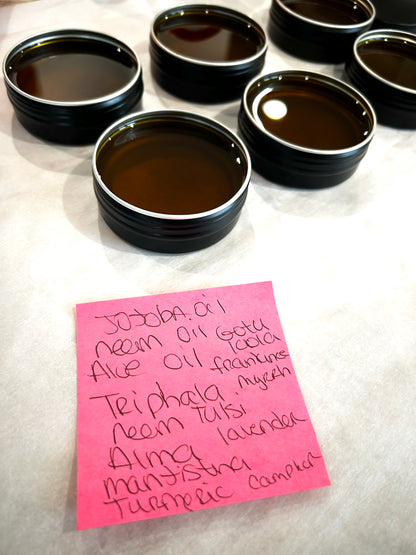 JOJOBA oil
neem oil Gotu
Aloe oil kola
frankince
Triphala myrrh
neem Tulsi
Alma lavender
manjistha
Turmeric camphor